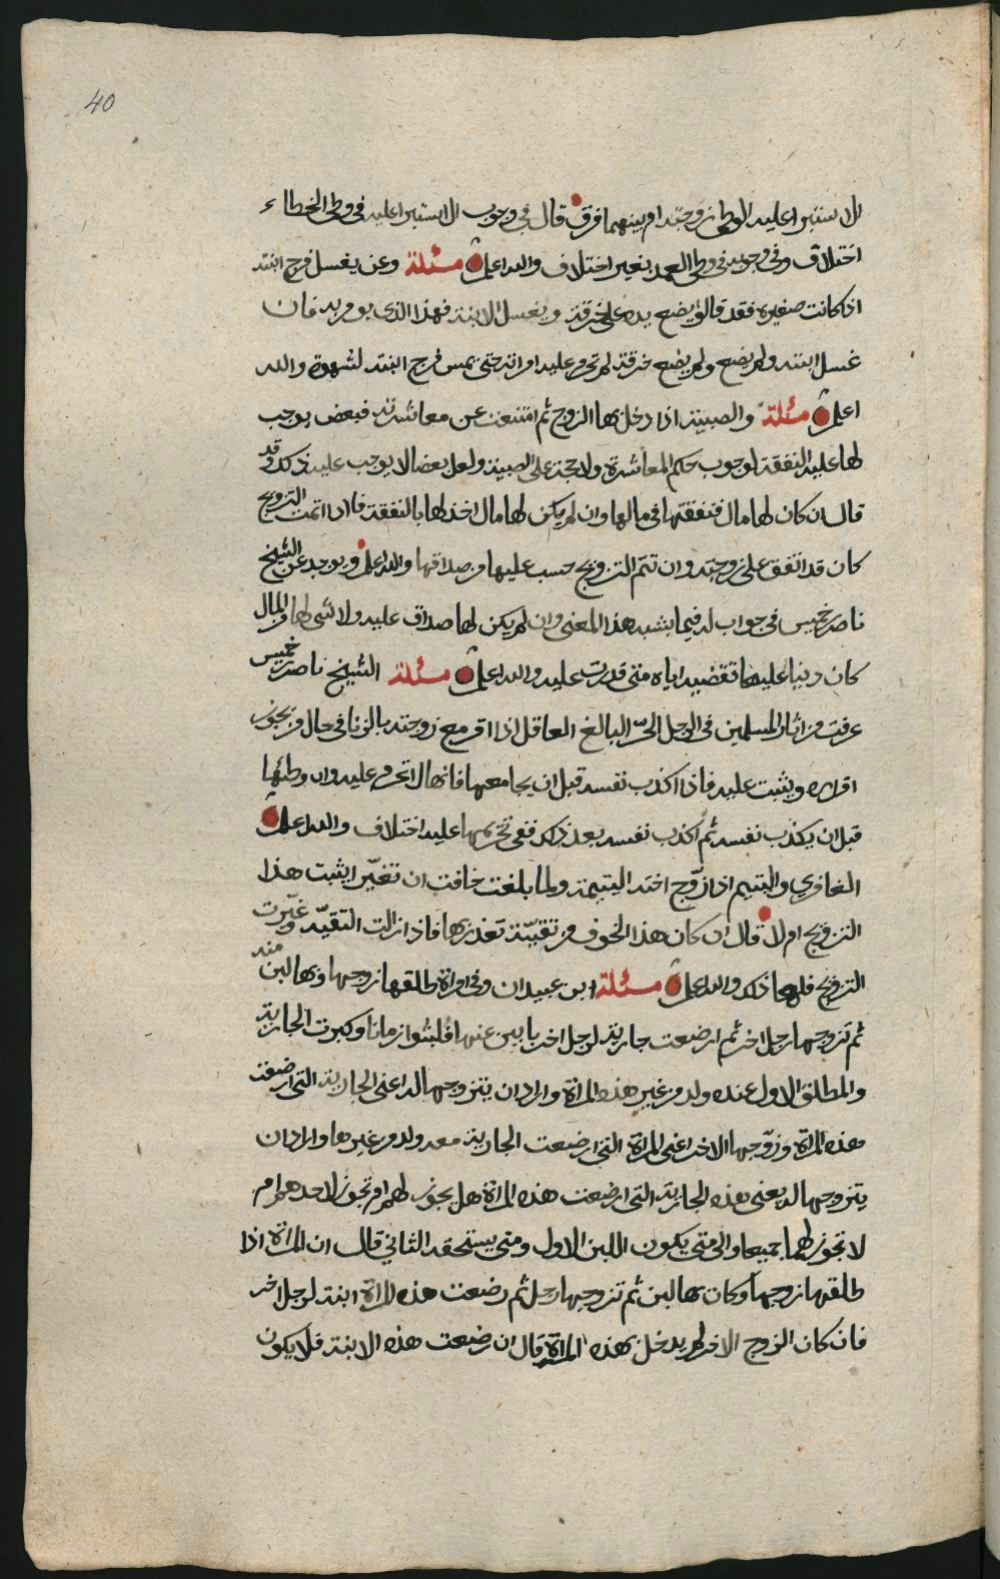 40
الاستبراء عليه لوطئ زوجته ام بينهما فرق قال في وجوب الاستبراء عليه في وطئ الخطاء
اختلاف وفي وجوبه في وطئ العمد بغير اختلاف والله اعلم مسئلة وعن يغسل فرج ابنته
اذا كانت صغيره فقد قالوا يضع يده على خرقة ويغسل الابنة فهذا الذي يومر به فان
غسل ابنته ولم يضع ولم يضع خرقة لم تحرم عليه امراته حتى يمس فرج ابنته لشهوة والله
اعلم مسئلة والصبية اذا دخل بها الزوج ثم امتنعت عن معاشرته فبعض يوجب
لها عليه النفقة لوجوب حكم المعاشرة ولا حجة على الصبية ولعل بعضا لا يوجب عليه ذلك وقد
قال ان كان لها مال فنفقتها في مالها وان لم يكن لها مال اخذ لها بالنفقة فاذا اتمت التزويج
كان قد انفق على زوجته وان تتم التزويج حسب عليها من صداقها والله اعلم ويوجد عن الشيخ
ناصر خميس في جواب له فيما يشبه هذا المعنى وان لم يكن لها صداق عليه ولا شي لها من المال
كان دينا عليها تقضيه اياه متى قدرت عليه والله اعلم مسئلة الشيخ ناصر خميس
عرفت من اثار المسلمين في الرجل الحرّ البالغ العاقل اذا اقر مع زوجته بالزنا في حال من يجوز
اقراره ويثبت عليه فاذا اكذب نفسه قبل ان يجامعها فانها لا تحرم عليه وان وطئها
قبل ان يكذب نفسه ثم اكذب نفسه بعد ذلك ففي تحريمها عليه اختلاف والله اعلم
الغافري واليتيم اذا زوّج اخته اليتيمة ولما بلغت خافت ان تغيّر ايثبت هذا
التزويج ام لا قال ان كان هذا الخوف من تقيّة تعذر بها فاذا زالت التقيّه وغيّرت
التزويج فلها ذلك والله اعلم مسئلة ابن عبيدان وفي امراة طلقها زوجها وبها لبن منه
ثم تزوجها رجل اخر ثم ارضعت جارية لرجل اخر باين عنها فلبثوا زمانا وكبرت الجارية
والمطلق الاول عنده ولد من غير هذه المراة واراد ان يتزوجها له اعني الجارية التي ارضعت
هذه المراة وزوّجها الاخر اعني المراة التي ارضعت الجارية معه ولد من غيرها واراد ان
يتزوجها له يعني هذه الجارية التي ارضعت هذه المراة هل يجوز لهم ام تجوز لاحدهم ام
لا تجوز لهما جميعا والى متى يكون اللبن الاول ومتى يستحقه الثاني قال ان المراة اذا
طلقها زوجها وكان بها لبن ثم تزوجها رجل ثم رضعت هذه المراة ابنة لرجل اخر
فان كان الزوج الاخر لم يدخل بهذه المراة قال ان رضعت هذه الابنة فلا يكون